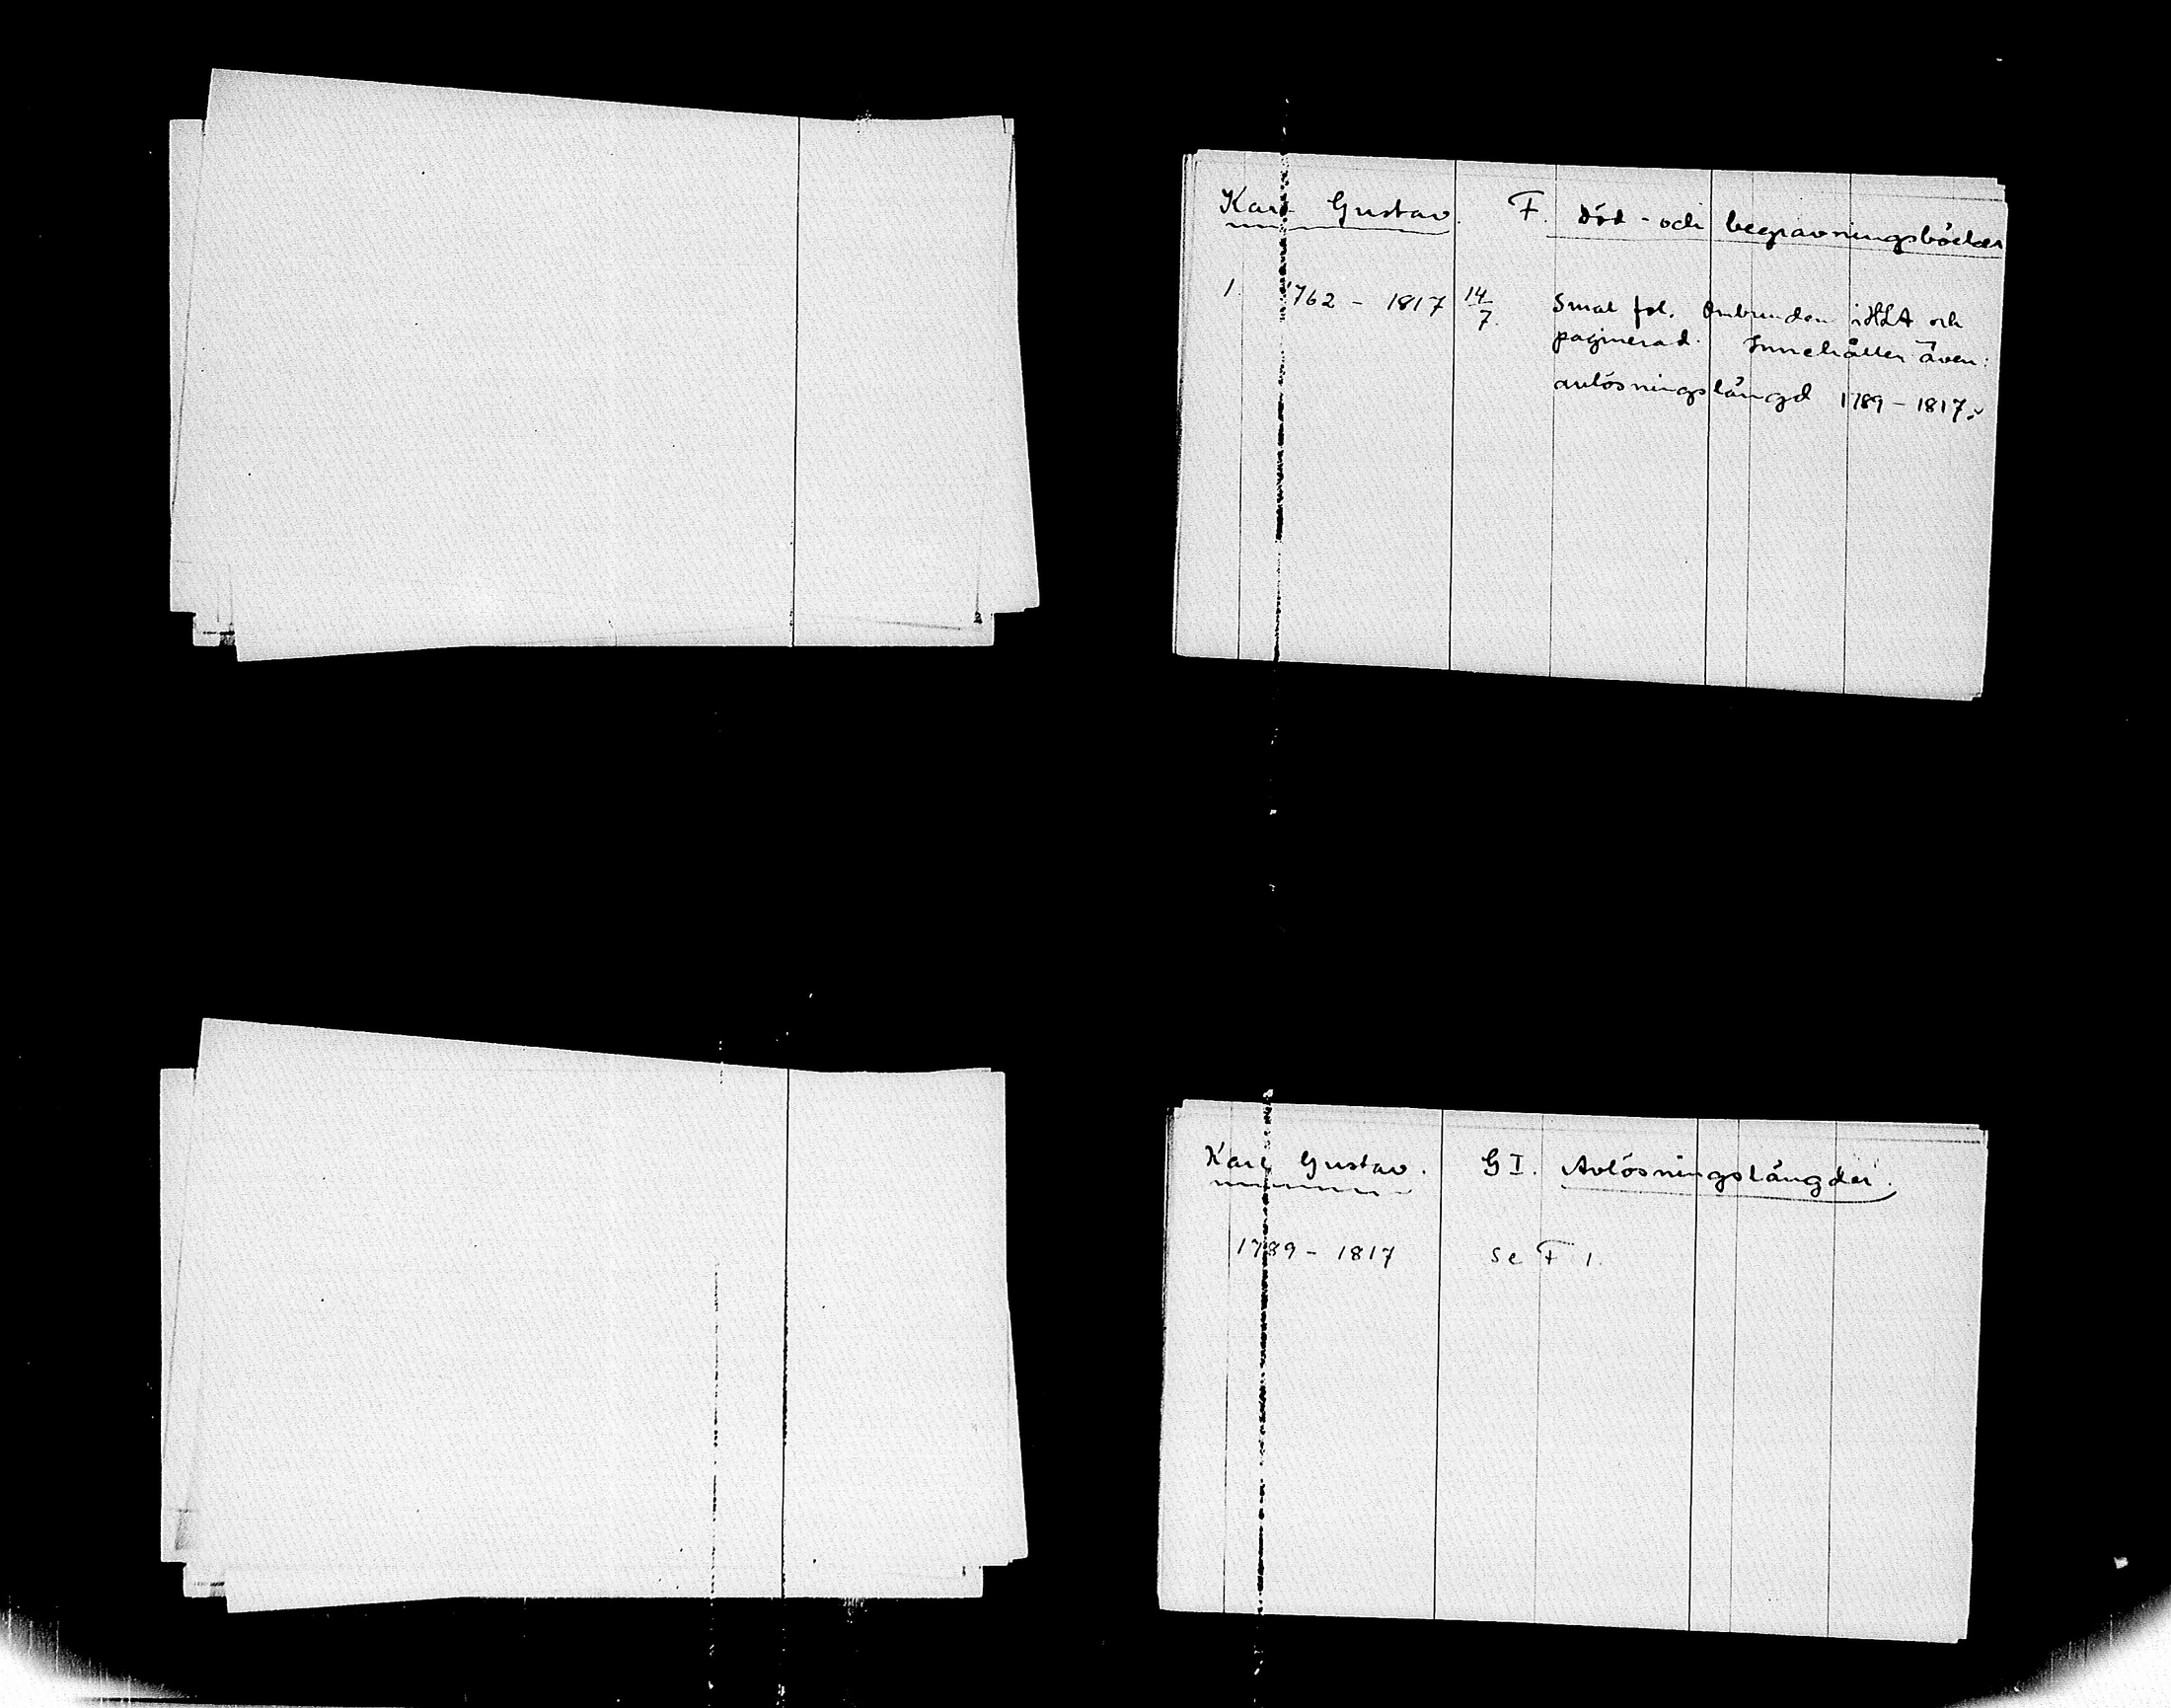 Karl Gustav. F. Död- och begravningsböcker
1. 1762 - 1817 14/7. Smal fol. Ombunden i HLA och
paginerad. Innehåller även:
avlösningslängd 1789 - 1817.
Karl Gustav. G I. Avlösningslängder.
1789 - 1817 se F 1.